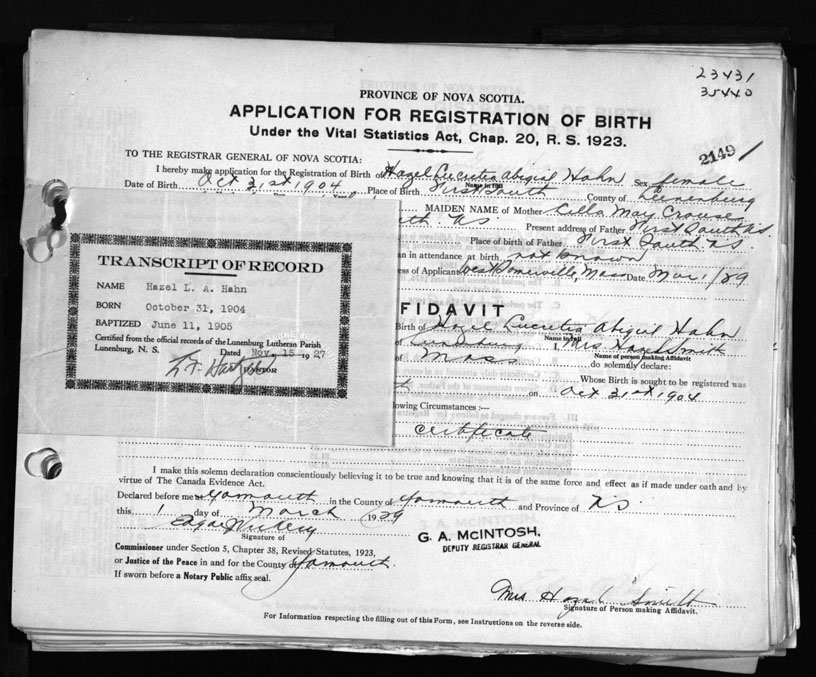 23431
35440
PROVINCE OF NOVA SCOTIA.
APPLICATION FOR REGISTRATION OF BIRTH
Under the Vital Statistics Act, Chap. 20, R. S. 1923.
2149
TO THE REGISTRAR GENERAL OF NOVA SCOTIA:
I hereby make application for the Registration of Birth of Hazel Lucretia Abigial Hahn Sex female
Name in full
Date of Birth Oct 31st 1904 Place of Birth First South County of Lunenburg
MAIDEN NAME of Mother Lilla May Crouse
South NS Present address of Father First South N.S.
Place of birth of Father First South NS
an in attendance at birth not known
ss of Applicant West Somerville, Mass Date Mar 1/29
FIDAVIT
Birth of Hazel Lucretia Abigial Hahn
Name in full
of Lunenburg I, Mrs Hazel Smith
Name of person making Affidavit
of Mass do solemnly declare:
Whose Birth is sought to be registered was
on Oct 31st 1904
llowing Circumstances :—
certificate
TRANSCRIPT OF RECORD
NAME Hazel L. A. Hahn
BORN October 31, 1904
BAPTIZED June 11, 1905
Certified from the official records of the Lunenburg Lutheran Parish
Lunenburg, N. S. Dated Nov. 15 1927
PASTOR
I make this solemn declaration conscientiously believing it to be true and knowing that it is of the same force and effect as if made under oath and by
virtue of The Canada Evidence Act.
Declared before me at Yarmouth in the County of Yarmouth and Province of NS
this 1 day of March 1929
Signature of
G. A. McINTOSH,
DEPUTY REGISTRAR GENERAL
Commissioner under Section 5, Chapter 38, Revised Statutes, 1923,
or Justice of the Peace in and for the County of Yarmouth.
If sworn before a Notary Public affix seal.
Mrs Hazel Smith
Signature of Person making Affidavit.
For Information respecting the filling out of this Form, see Instructions on the reverse side.